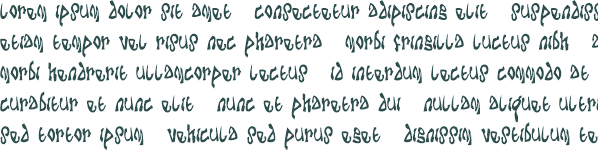 lorem ipsum dolor sit amet consectetur adipiscing elit suspendiss
etiam tempor vel risus nec pharetra morbi fringilla luctus nibh
morbi hendrerit ullamcorper lectus id interdum lectus commodo at
curabitur et nunc elit nunc et pharetra dui nullam aliquet ultri
sed tortor ipsum vehicula sed purus eget dignissim vestibulum te